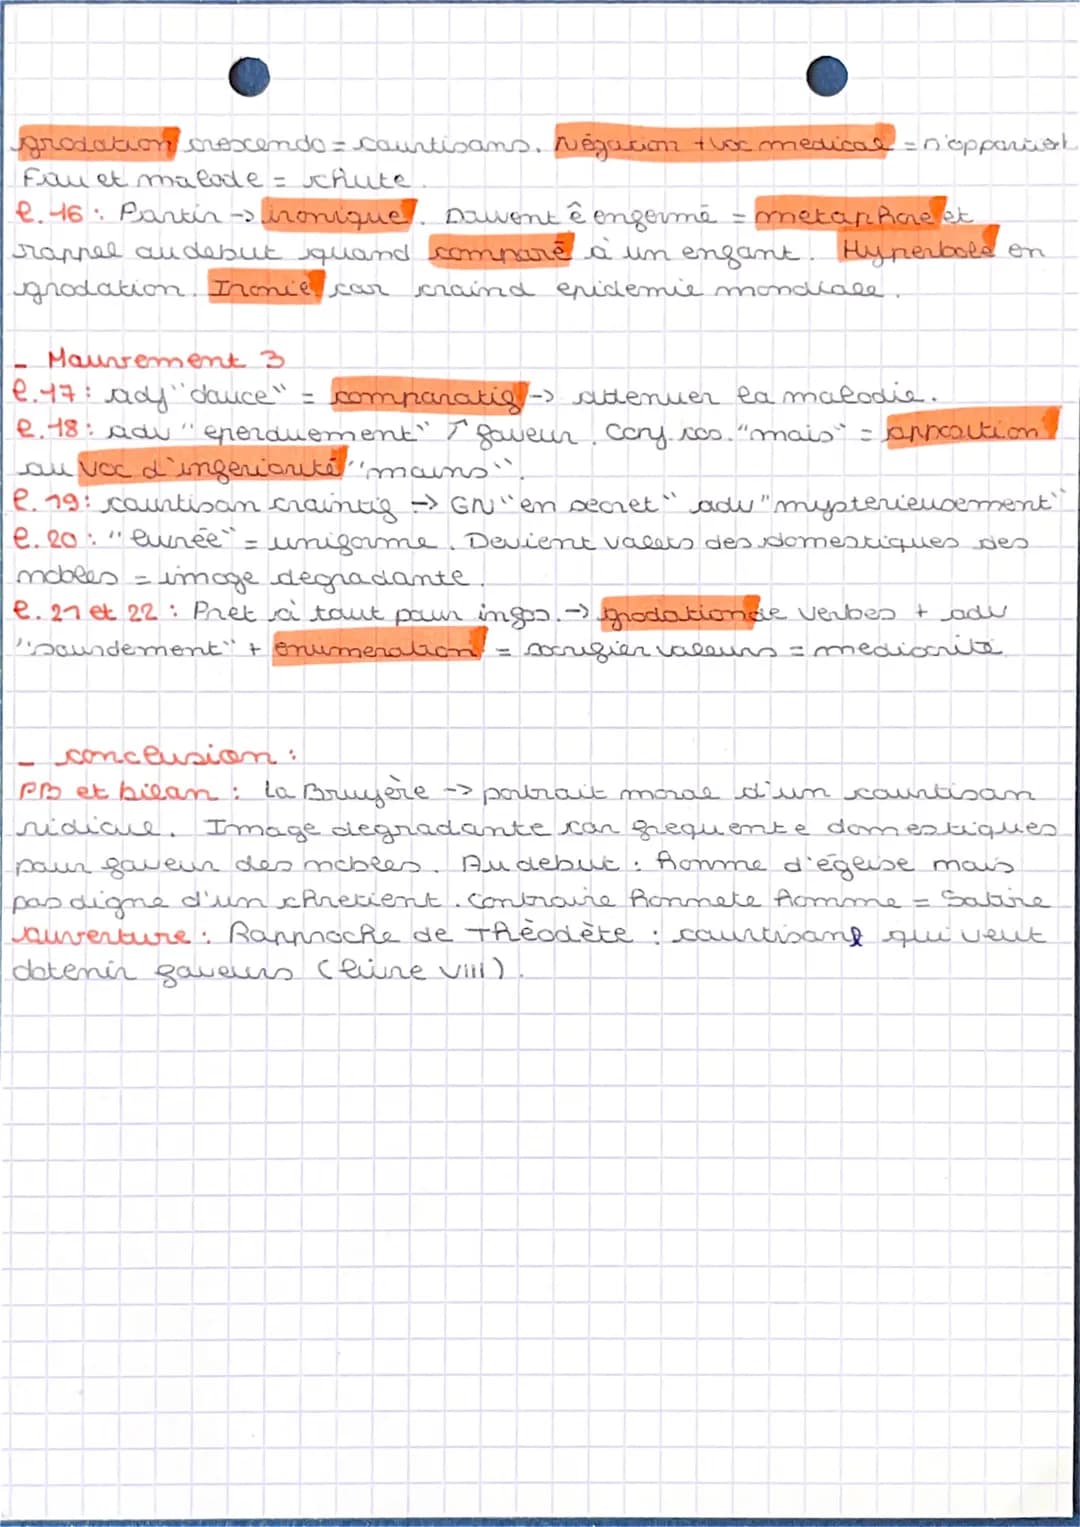 gradation crescendo = courtisans. Négation + voc medical = n'appartient
Fou et malade = chute.
l.16 : Partir -> ironique. Doivent ê enfermé = metaphore et
rappel au debut quand comparé à un enfant. Hyperbole en
gradation. Ironie car craind epidemie mondiale.
- Mouvement 3
l.17 : adj "douce" = comparatif -> attenuer la maladie.
l.18 : adv "eperduement" ↑ faveur. Conj. coo. "mais" = opposition
au voc d'inferiorité "moins".
l.19 : courtisan craintif -> GN "en secret" adv "mysterieusement"
l.20 : "livrée" = uniforme. Devient valets des domestiques des
nobles = image degradante.
l.21 et 22 : Pret à tout pour infos. -> gradation de verbes + adv
"sourdement" + enumeration = sacrifier valeurs = mediocrité
- conclusion :
PB et bilan : La Bruyère -> portrait morae d'un courtisan
ridicule. Image degradante car frequente domestiques
pour faveur des nobles. Au debut : homme d'église mais
pas digne d'un chretient. Contraire honnete homme = Satire
ouverture : Rapproche de Thèodète : courtisans qui veut
detenir faveurs (livre VIII).